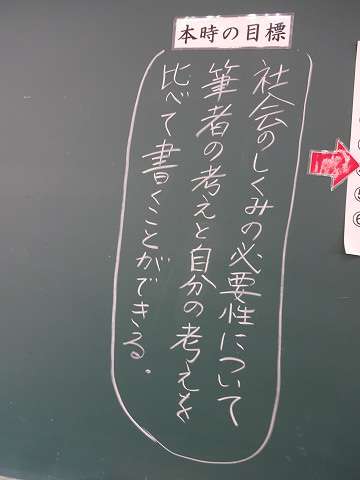 本時の目標
社会のしくみの必要性について
筆者の考えと自分の考えを
比べて書くことができる.